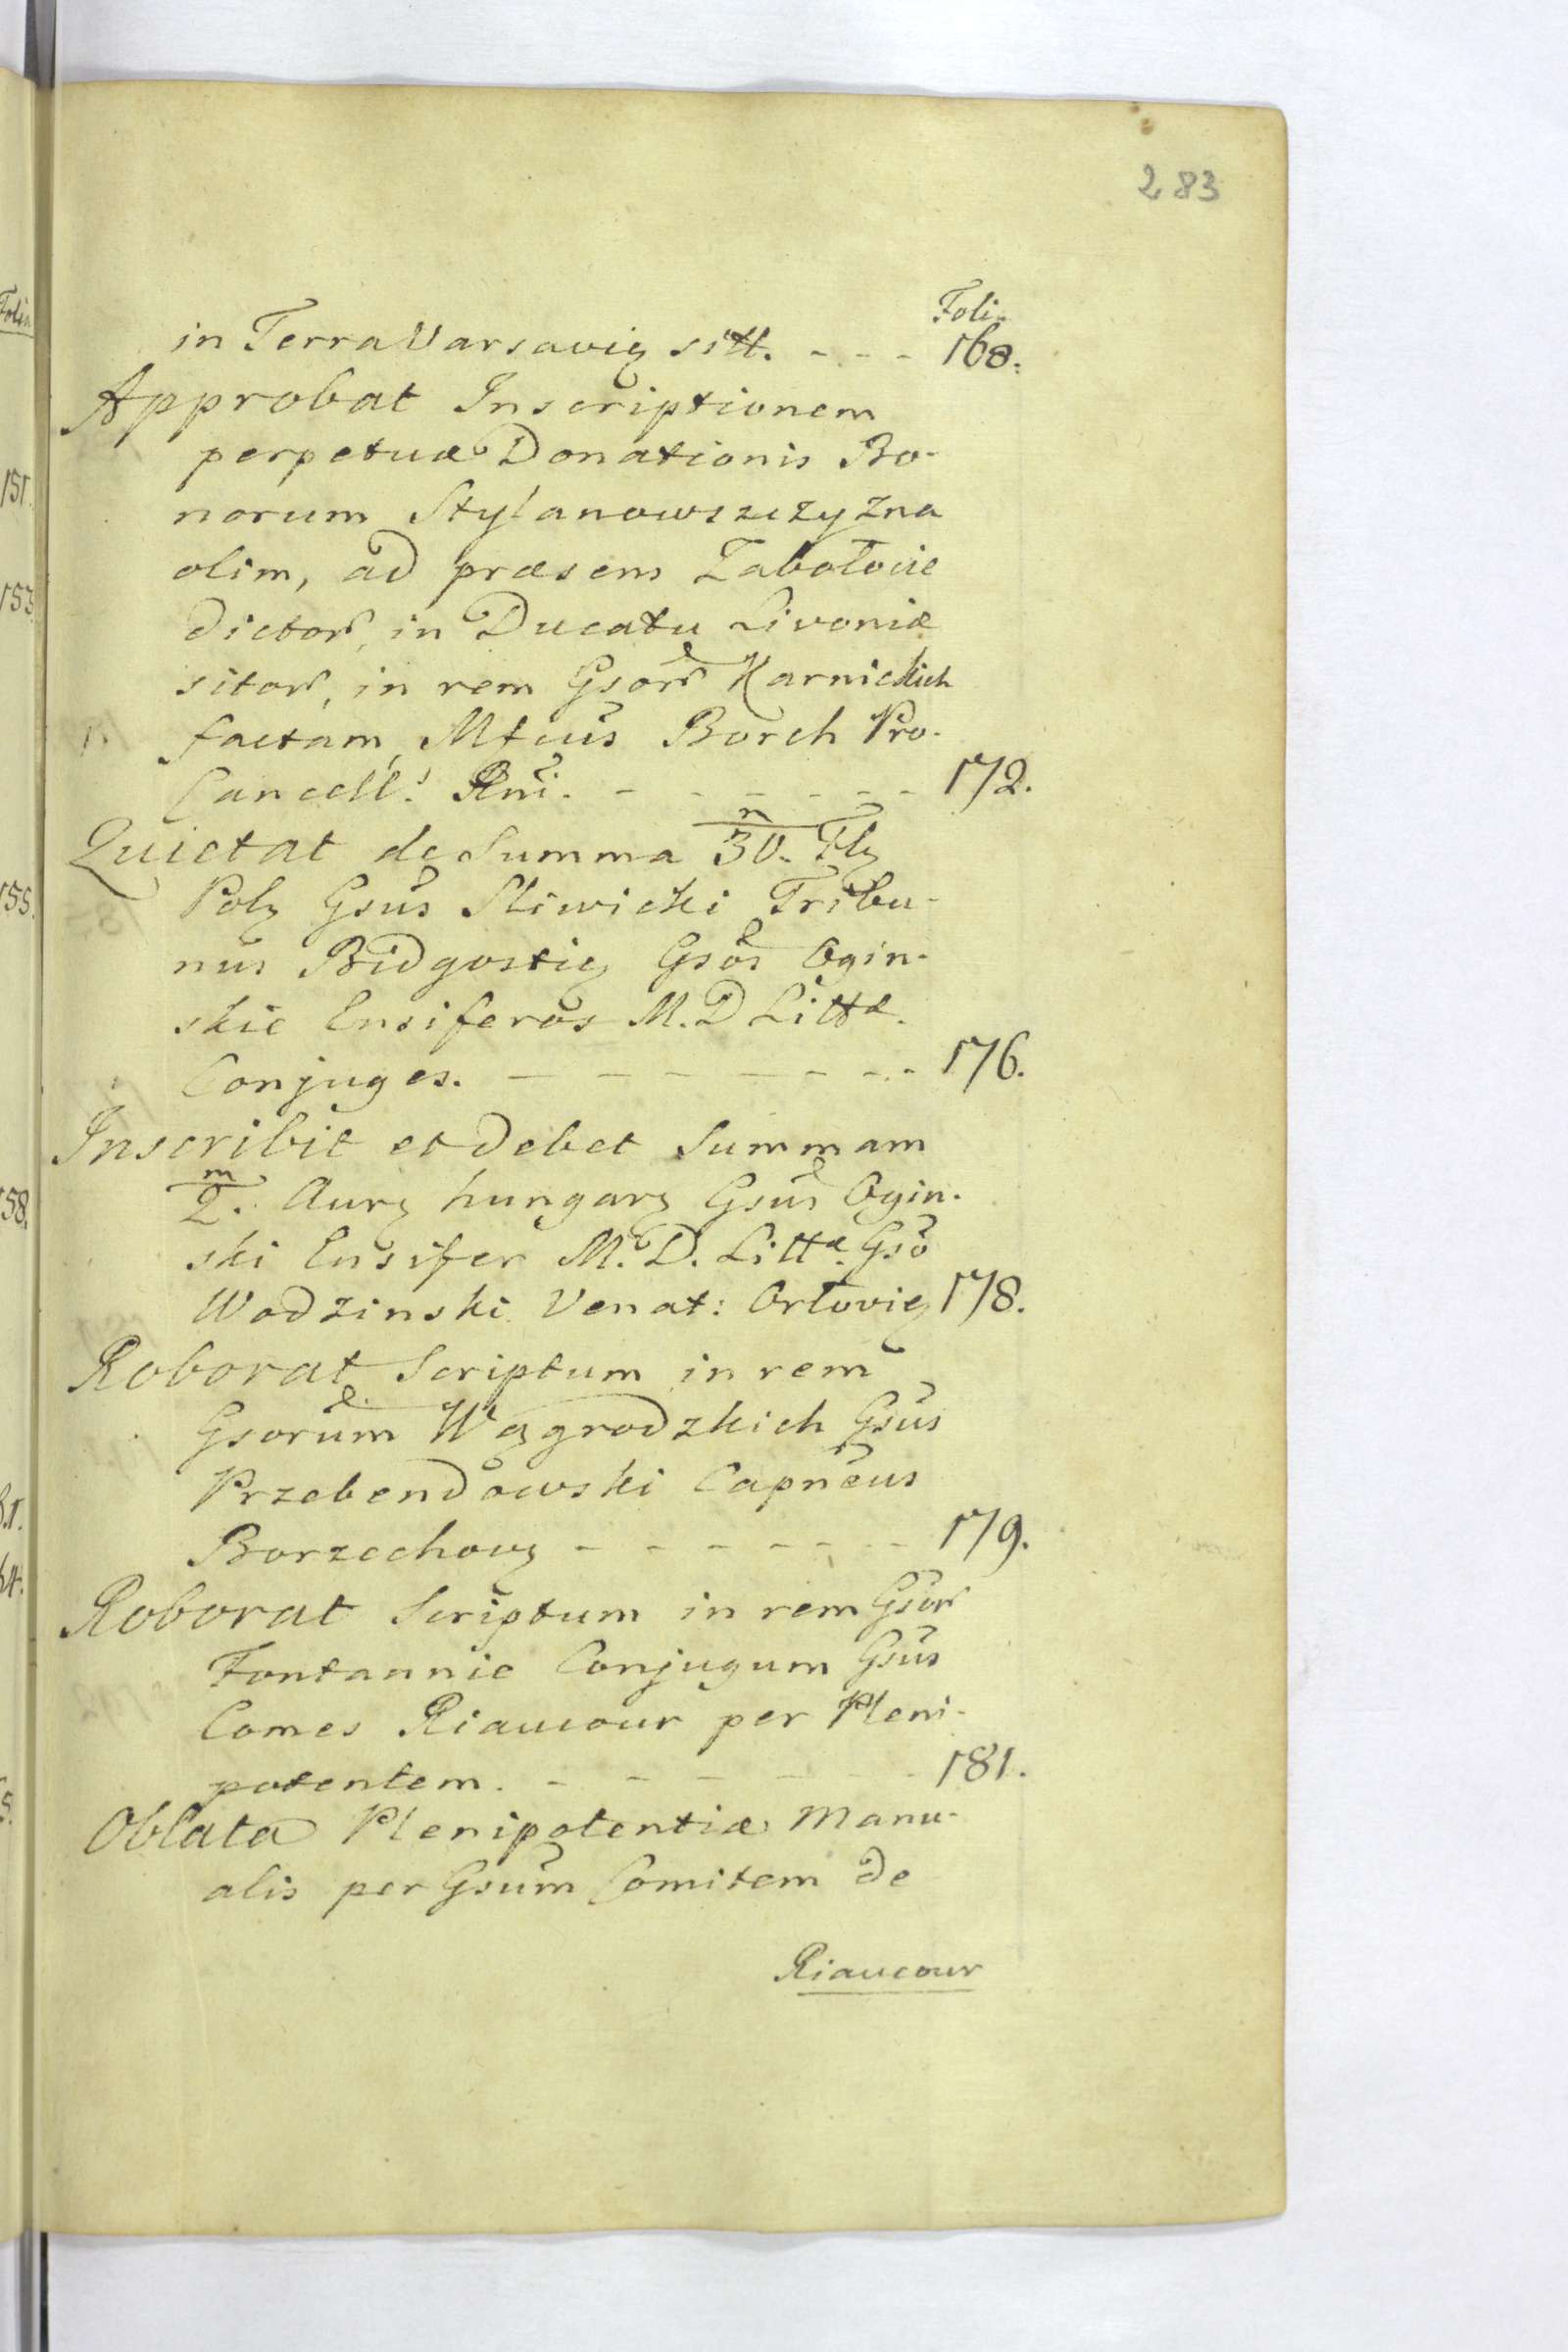 283
Foli.
in Terra Varsavię sitt. - - - 168.
Approbat Inscriptionem
perpetuæ Donationis Bo-
norum Stylanowszczyzna
olim, ad præsens Zabołocie
dictor, in Ducatu Livoniæ
sitor, in rem Gsor Karnickich
factam, Mtcus Borch Pro-
Cancell: Rni. - - - - - - 172.
Quietat de Summa 30. Flę
m
Polę Gsus Sliwicki Tribu-
nus Bidgostię Gsos Ogin-
skie Ensiferos M. D Littæ.
Conjuges. - - - - - - - - 176.
Inscribit et debet Summam
m
2. Aurę hungarę Gsus Ogin-
ski Ensifer M. D. Littæ. Gso
Wodzinski Venat: Orłovię 178.
Roborat Scriptum in rem
Gsorum Węgrodzkich Gsus
Przebendowski Capneus
Borzechovę - - - - - - - 179.
Roborat Scriptum in rem Gsor
Fontannie Conjugum Gsus
Comes Riaucour per Pleni-
potentem. - - - - - - 181.
Oblata Plenipotentiæ Manu-
alis per Gsum Comitem de
Riaucour
Folia
151.
153.
155.
158.